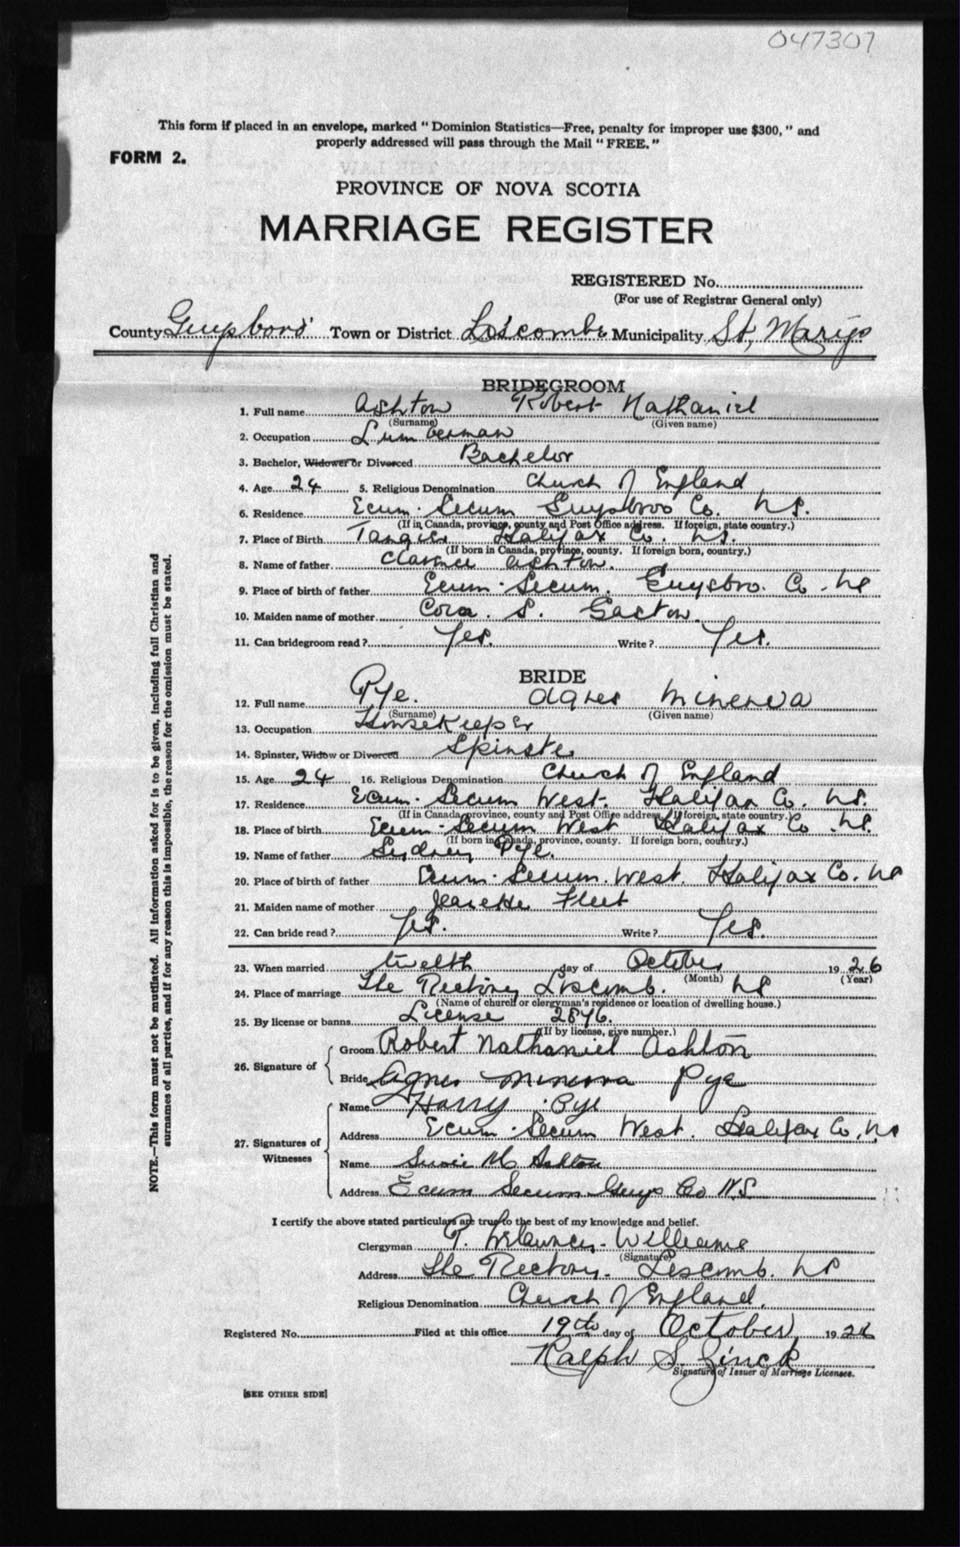 047307
This form if placed in an envelope, marked " Dominion Statistics—Free, penalty for improper use $300, " and
properly addressed will pass through the Mail " FREE. "
FORM 2.
PROVINCE OF NOVA SCOTIA
MARRIAGE REGISTER
REGISTERED No.
(For use of Registrar General only)
County Guysboro' Town or District Liscombe Municipality St, Marys
BRIDEGROOM
1. Full name Ashton Robert Nathaniel
(Surname) (Given name)
2. Occupation Lumberman
3. Bachelor, Widower or Divorced Bachelor
4. Age 24 5. Religious Denomination Church of England
6. Residence Ecum-Secum Guysboro Co. NS.
(If in Canada, province, county and Post Office address. If foreign, state country.)
7. Place of Birth Tangier Halifax Co. NS.
(If born in Canada, province, county. If foreign born, country.)
8. Name of father Clarence Ashton.
9. Place of birth of father Ecum-Secum. Guysboro. Co NS
10. Maiden name of mother Cora S.
11. Can bridegroom read ? Yes. Write ? Yes.
BRIDE
12. Full name Pye. Agnes Minerva
(Surname) (Given name)
13. Occupation Housekeeper
14. Spinster, Widow or Divorced Spinster
15. Age 24 16. Religious Denomination Church of England
17. Residence Ecum-Secum West. Halifax Co. NS.
(If in Canada, province, county and Post Office address. If foreign, state country.)
18. Place of birth Ecum-Secum West Halifax Co. NS.
(If born in Canada, province, county. If foreign born, country.)
19. Name of father Sydney Pye.
20. Place of birth of father Ecum-Secum. West. Halifax Co. NS
21. Maiden name of mother Fleet
22. Can bride read ? Yes. Write ? Yes.
23. When married twelth day of October 1926
(Month) (Year)
24. Place of marriage The Rectory Liscomb. NS
(Name of church or clergyman's residence or location of dwelling house.)
25. By license or banns License 2876.
(If by license, give number.)
26. Signature of
Groom Robert Nathaniel Ashton
Bride Agnes Minerva Pye
27. Signatures of Witnesses
Name Harry Pye
Address Ecum-Secum West. Halifax Co. NS
Name Susie M Ashton
Address Ecum Secum Guys Co N.S
I certify the above stated particulars are true to the best of my knowledge and belief.
Clergyman Williams
(Signature)
Address The Rectory. Liscomb. NS
Religious Denomination Church of England.
Registered No. Filed at this office 19th day of October 1926
Ralph S. Zinck
Signature of Issuer of Marriage Licenses.
[SEE OTHER SIDE]
NOTE.—This form must not be mutilated. All information asked for is to be given, including full Christian and
surnames of all parties, and if for any reason this is impossible, the reason for the omission must be stated.